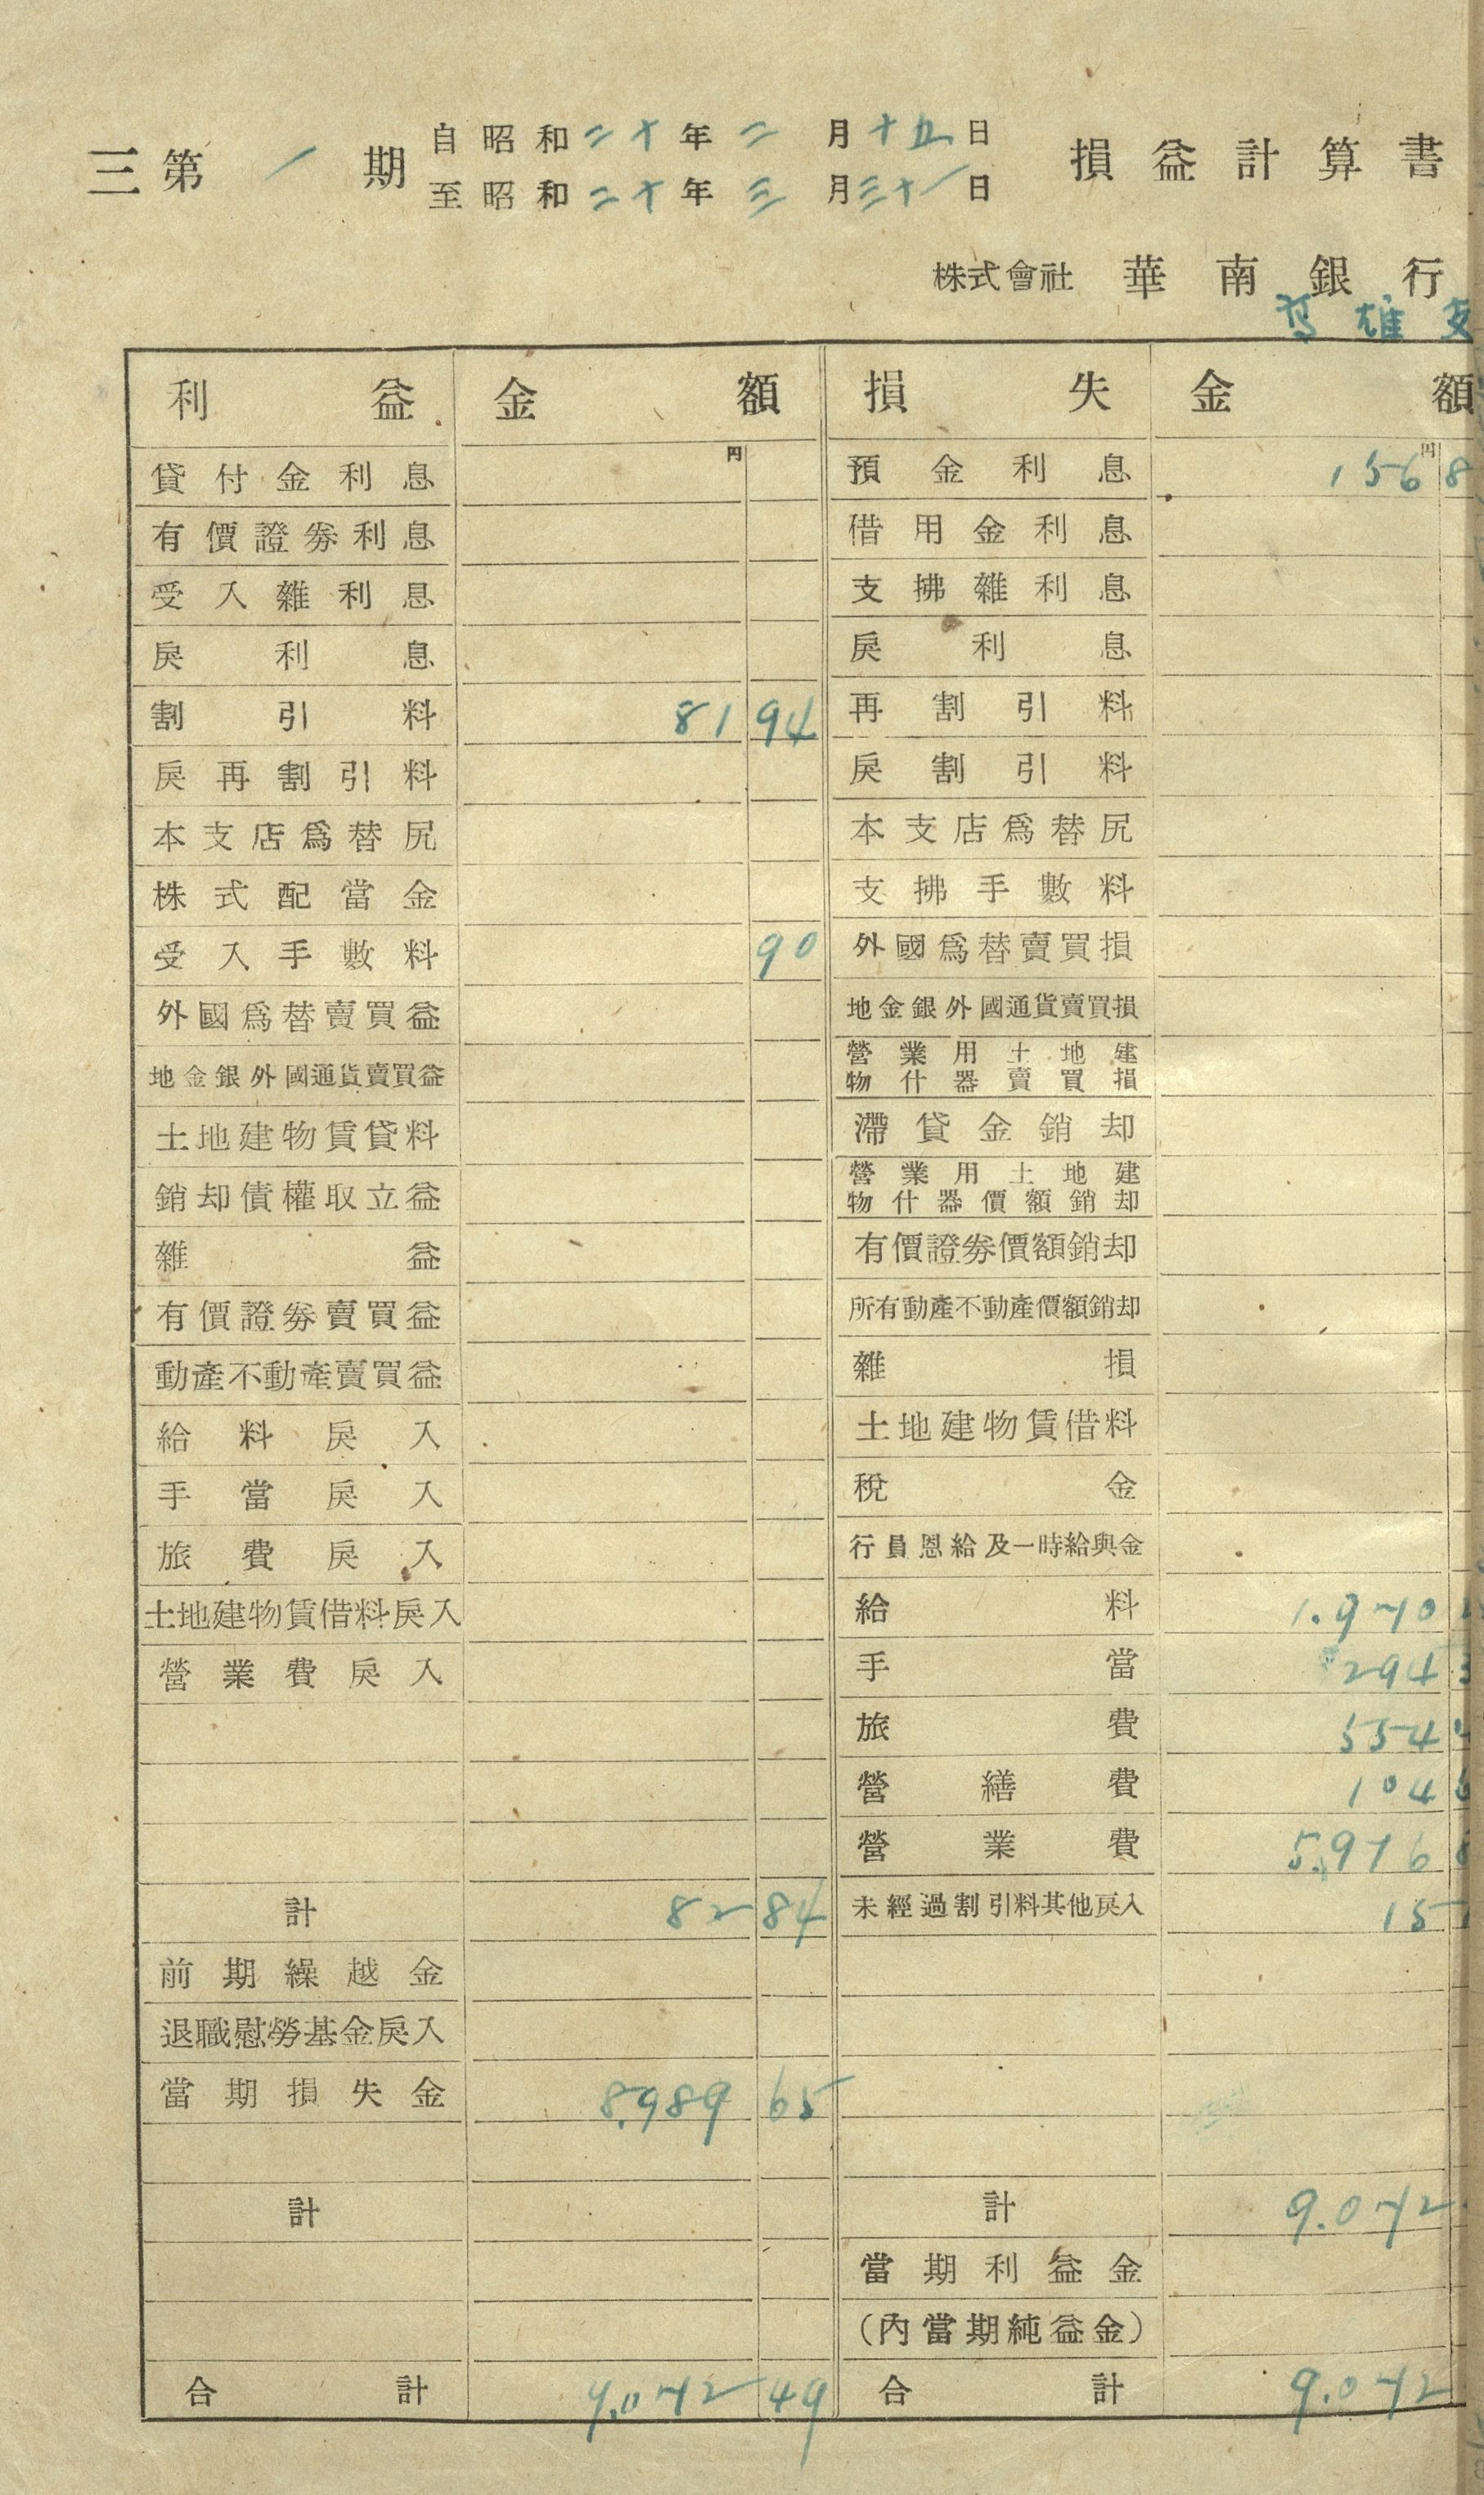 三第一期 自昭和二十年二月十五日 損益計算書
至昭和二十年三月三十一日
株式會社 華南銀行
高雄支
利益 金額 損失 金額
貸付金利息 円 預金利息 円 156 8
有價證券利息 借用金利息
受入雜利息 支拂雜利息
戾利息 戾利息
割引料 81 94 再割引料
戾再割引料 戾割引料
本支店爲替尻 本支店爲替尻
株式配當金 支拂手數料
受入手數料 90 外國爲替賣買損
外國爲替賣買益 地金銀外國通貨賣買損
地金銀外國通貨賣買益 營業用土地建物什器賣買損
土地建物賃貸料 滯貸金銷却
銷却債權取立益 營業用土地建物什器價額銷却
雜益 有價證券價額銷却
有價證券賣買益 所有動產不動產價額銷却
動產不動產賣買益 雜損
給料戾入 土地建物賃借料
手當戾入 稅金
旅費戾入 行員恩給及一時給與金
土地建物賃借料戾入 給料 1.970
營業費戾入 手當 294
旅費 554
營繕費 104
營業費 5.976
計 82 84 未經過割引料其他戾入 15
前期繰越金
退職慰勞基金戾入
當期損失金 8.989 65
計 計 9.072
當期利益金
（內當期純益金）
合計 9.072 49 合計 9.072